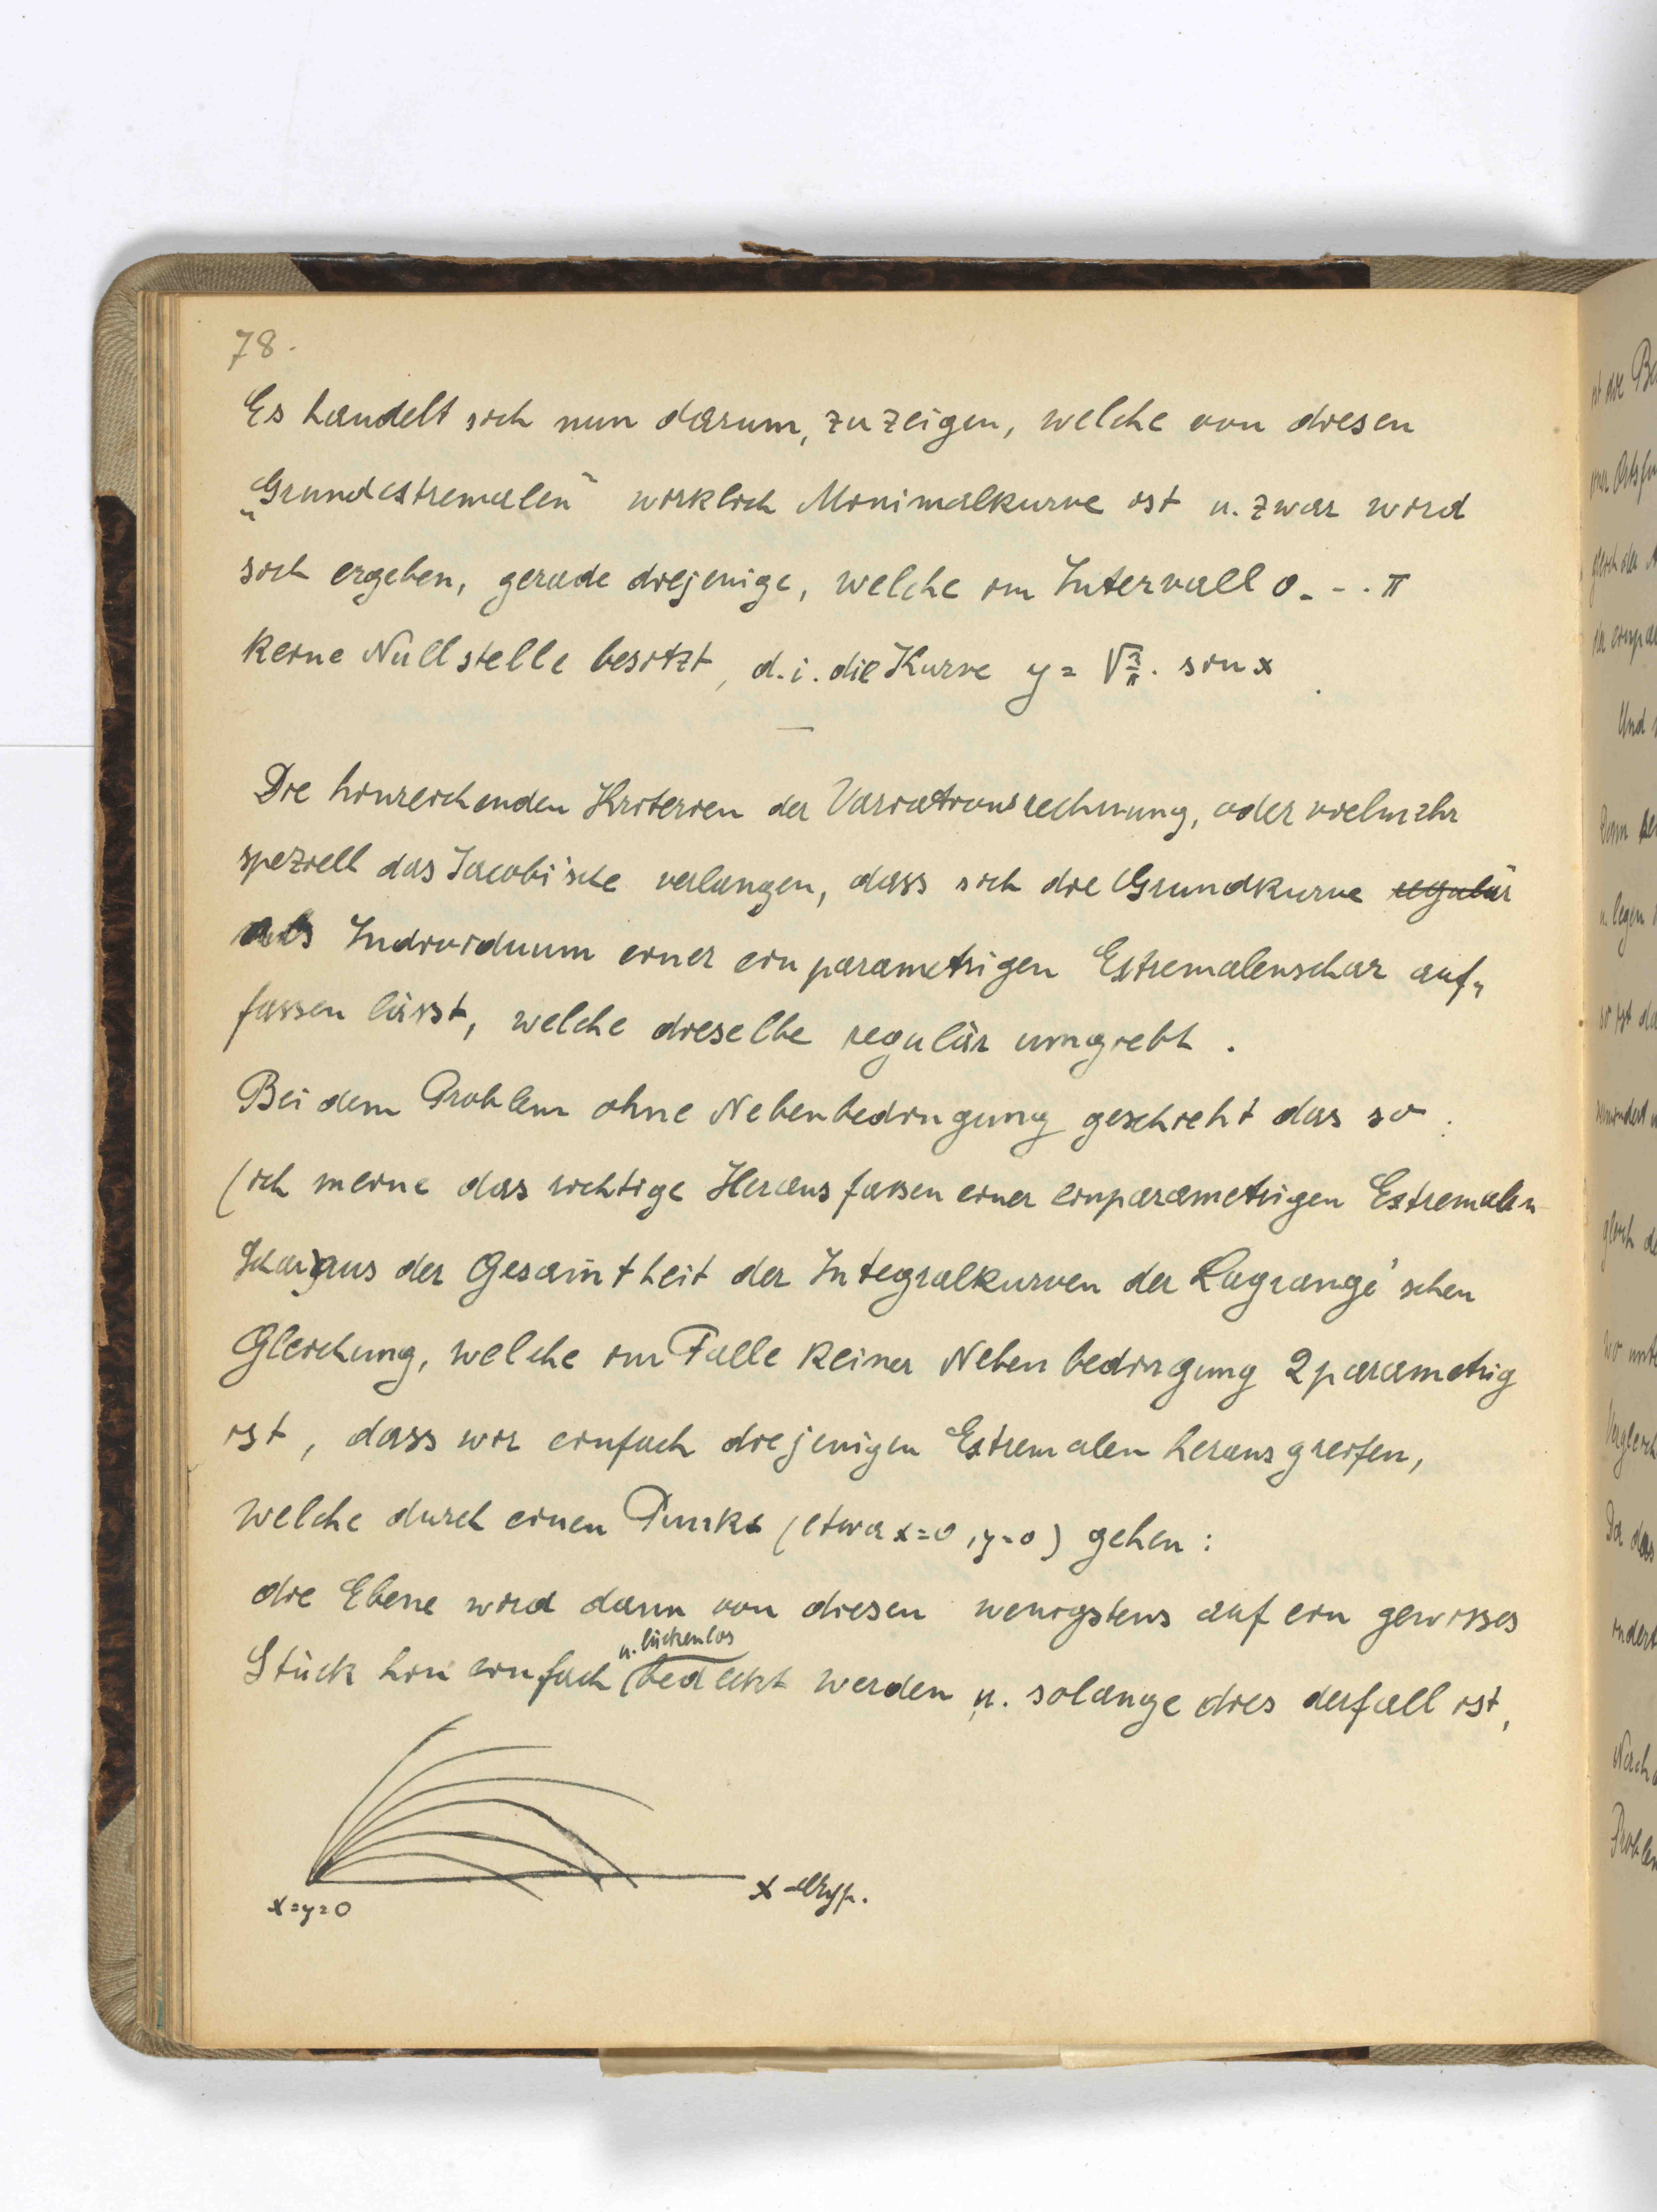 78.
Es handelt sich nun darum, zu zeigen, welche von diesen
„Grundextremalen" wirklich Minimalkurve ist u. zwar wird
sich ergeben, gerade diejenige, welche im Intervall 0 - - . π
keine Nullstelle besitzt, d. i. die Kurve y = √2/π . sin x .
Die hinreichenden Kriterien der Variationsrechnung, oder vielmehr
speziell das Jacobi'sche verlangen, dass sich die Grundkurve regulär
als Individuum einer einparametrigen Extremalenschar auf„
fassen lässt, welche dieselbe regulär umgiebt .
Bei dem Problem ohne Nebenbedingung geschieht das so :
(ich meine das richtige Herausfassen einer einparametrigen Extremalen
schar) aus der Gesamtheit der Integralkurven der Lagrange'schen
Gleichung, welche im Falle keiner Nebenbedingung 2 parametrig
ist, dass wir einfach diejenigen Extremalen herausgreifen,
welche durch einen Punkt (etwa x=0, y=0) gehen :
die Ebene wird dann von diesen wenigstens auf ein gewisses
u. lückenlos
Stück hin einfach bedeckt werden u. solange dies der fall ist,
x=y=0
x